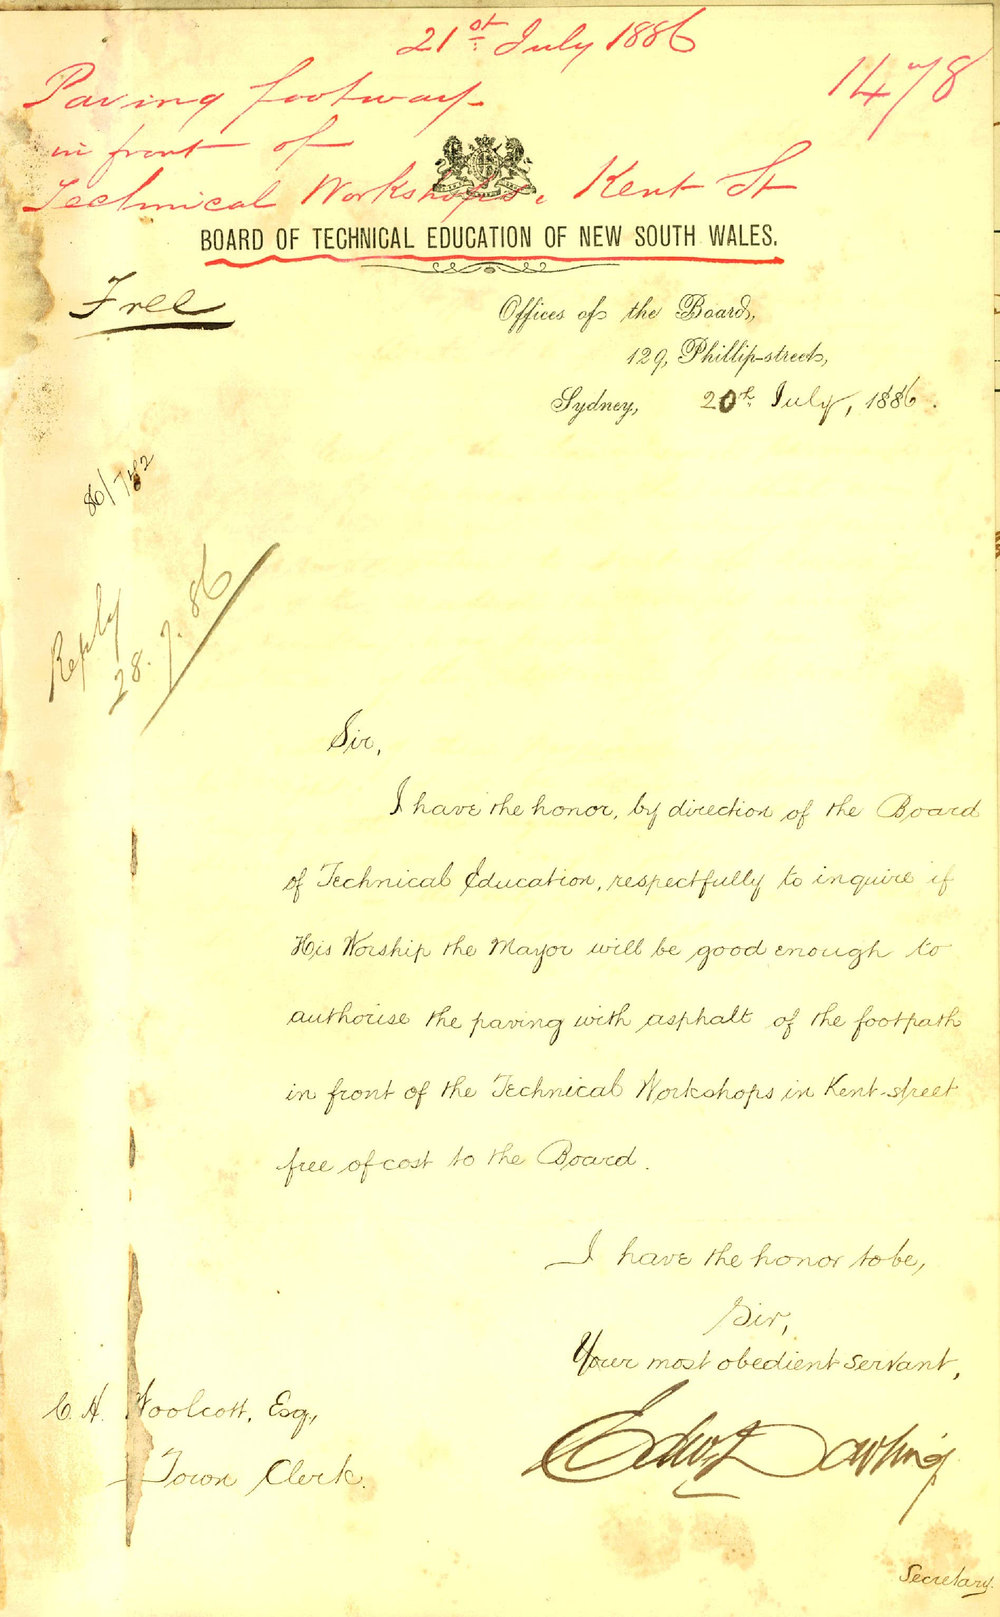 21st July 1886
1478
Paving footway
in front of
Technical Workshops, Kent St
BOARD OF TECHNICAL EDUCATION OF NEW SOUTH WALES.
Free
Offices of the Board,
129, Phillip-street,
Sydney, 20th July, 1886.
86/782
Reply
28.7.86
Sir,
I have the honor, by direction of the Board
of Technical Education, respectfully to inquire if
His Worship the Mayor will be good enough to
authorise the paving with asphalt of the footpath
in front of the Technical Workshops in Kent-street
free of cost to the Board.
I have the honor to be,
Sir,
Your most obedient servant,
Edw Dowling
Secretary.
C. H. Woolcott, Esq,
Town Clerk.